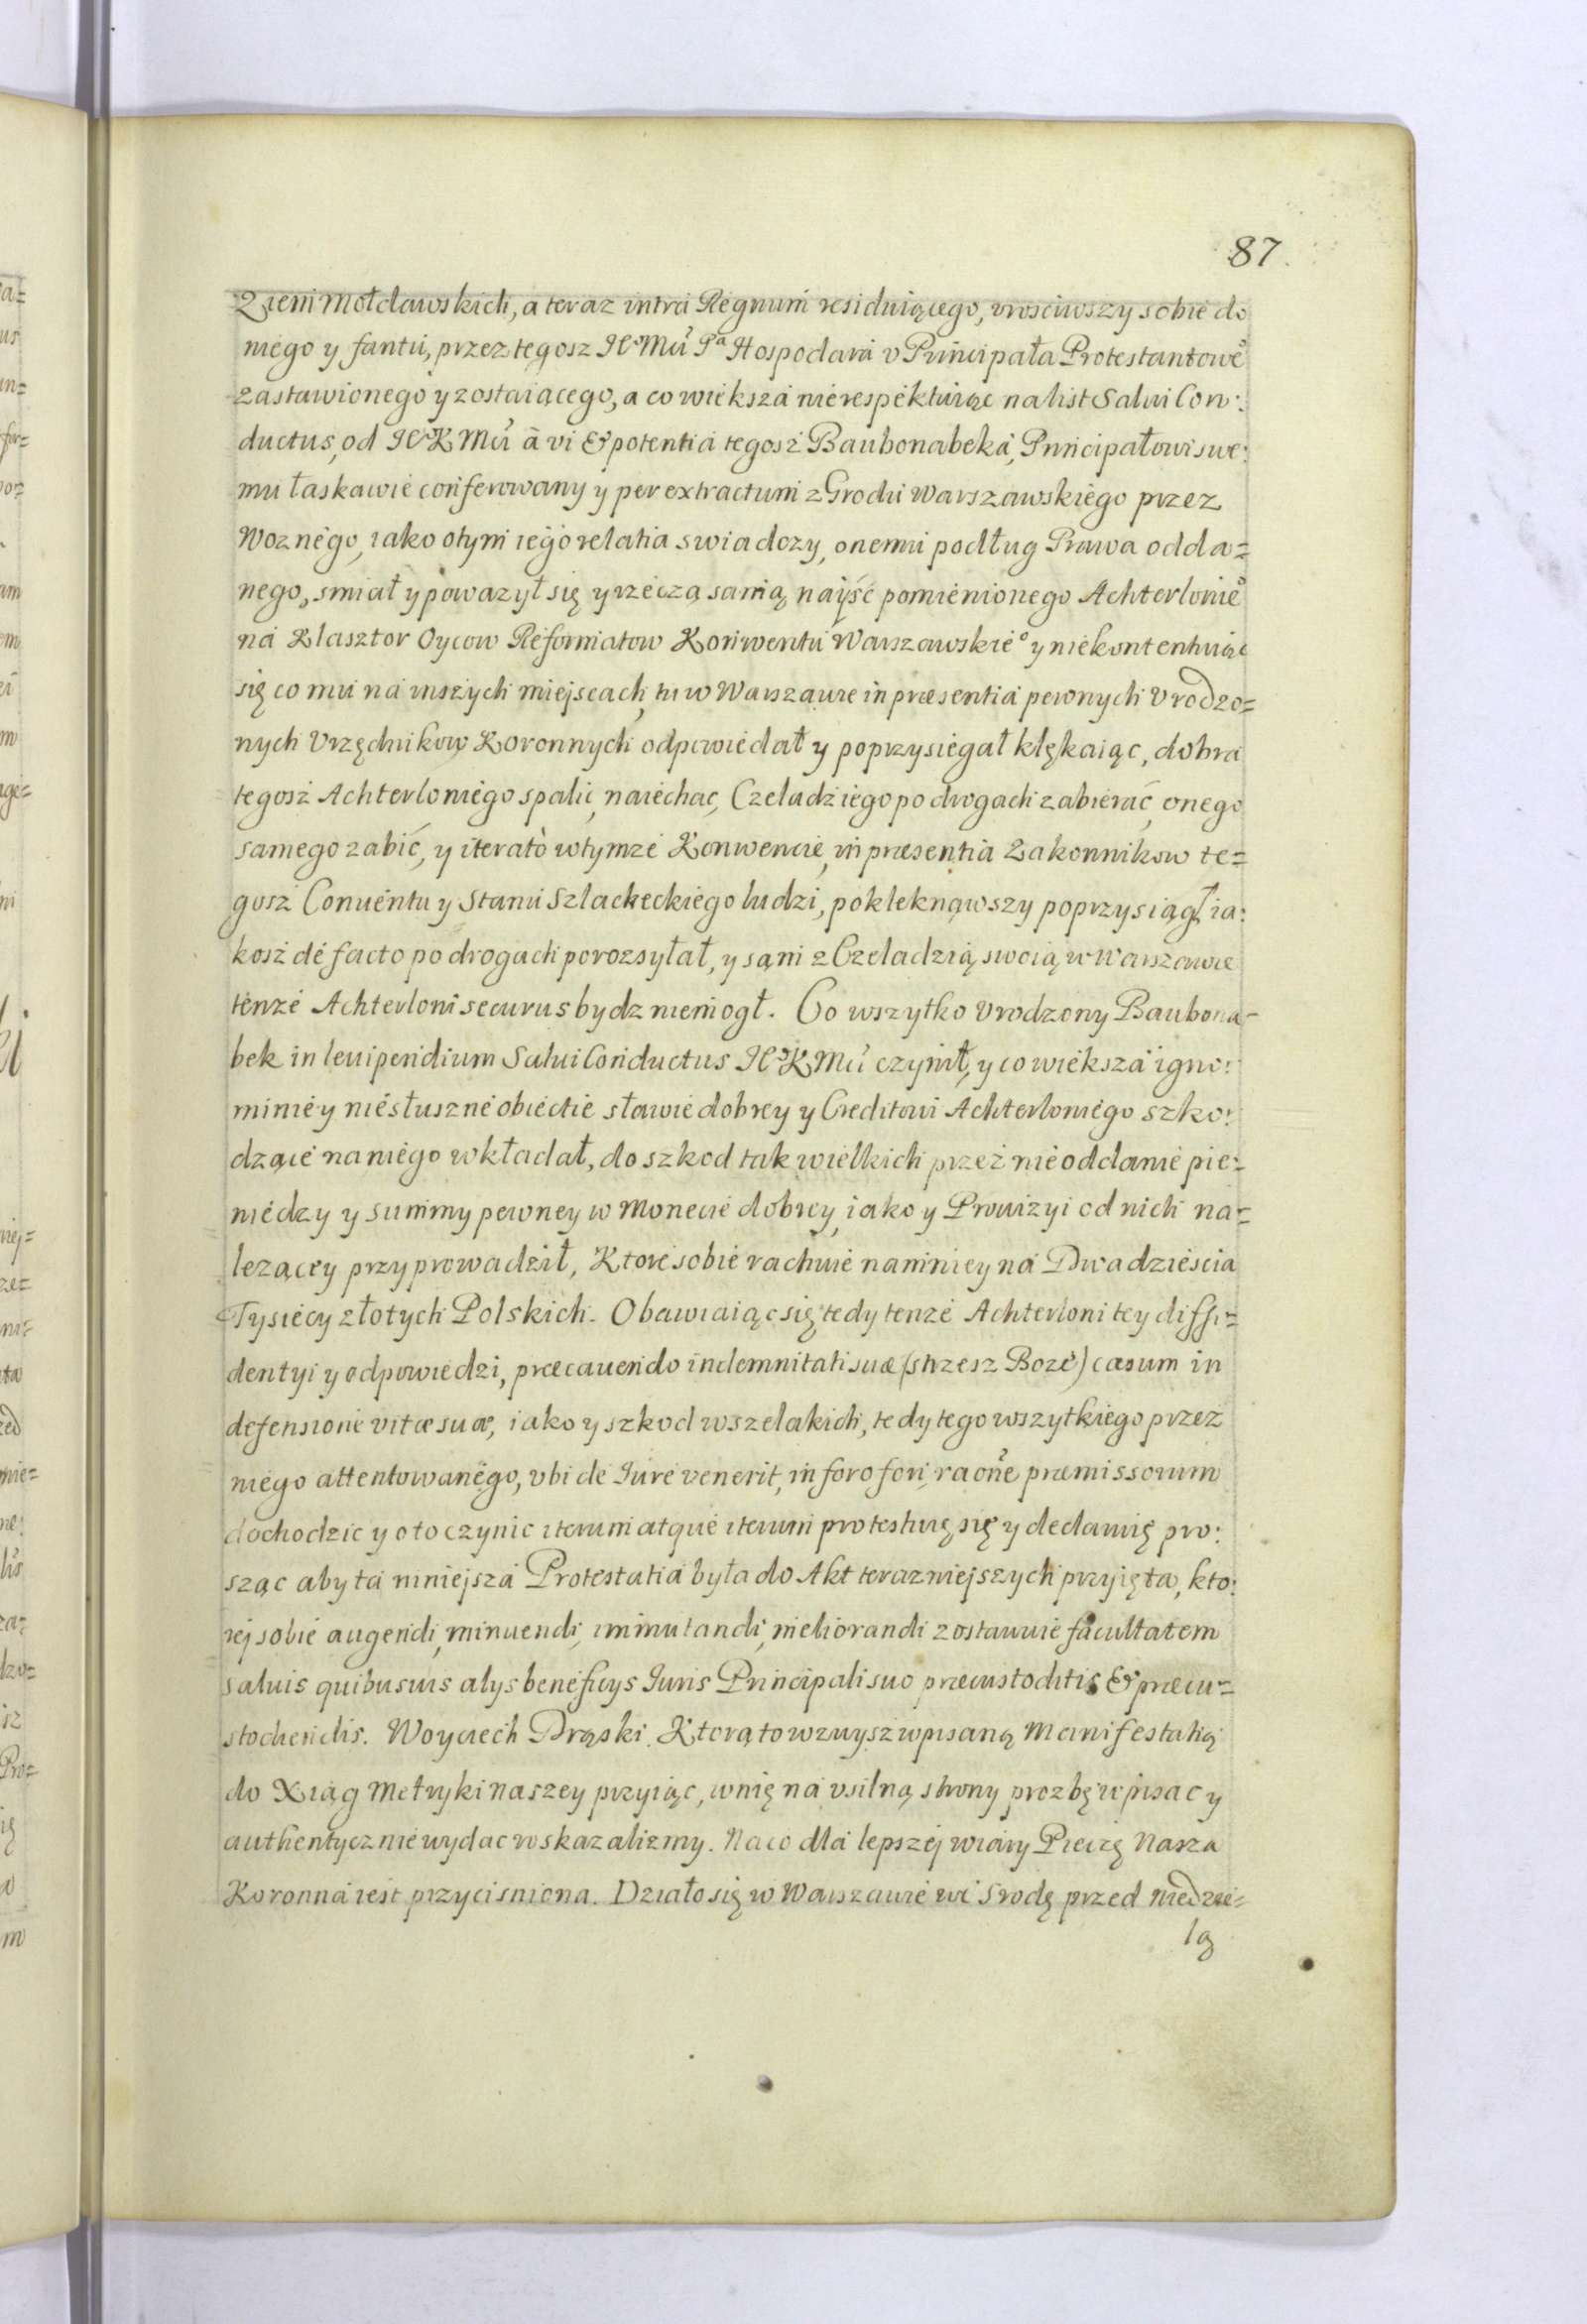 87
Ziem Mołdawskich, a teraz intra Regnum residuiącego, vrosciwszy sobie do
niego y fantu, przez tegosz JeoMci Pa Hospodara v Principała Protestantowe°
zastawionego y zostaiącego, a co większa nierespektuiąc na list Salui Con:
ductus, od JeoKMci à vi & potentia tegosz Baubonabeka, Principałowi swe:
mu łaskawie conferowany y per extractum z Grodu Warszawskiego przez
Woznego, iako o tym iego relatia swiadczy, onemu podług Prawa odda=
nego, smiał y powazył się y rzeczą samą nayść pomienionego Achterlonie°
na Klasztor Oycow Reformatow Konwentu Warszawskie° y niekontentuiąc
się co mu na inszych miejscach, tu w Warszawie in præsentia pewnych Vrodzo=
nych Vrzędnikow Koronnych odpowiedał y poprzysiegał klękaiąc, dobra
tegosz Achterloniego spalić, naiechac, Czeladz iego po drogach zabierać, onego
samego zabić, y iteratò w tymze Konwencie, in præsentia Zakonnikow te=
gosz Conuentu y Stanu Szlacheckiego ludzi, pokleknąwszy poprzysiągł, ia:
kosz de facto po drogach porozsyłał, y sam z Czeladzią swoią w Warszawie
tenze Achterloni securus bydz niemogł. Co wszytko Vrodzony Baubona=
bek in leuipendium Salui Conductus JeoKMci czynił, y co większa igno:
minie y niesłuszne obiectie sławie dobrey y Creditowi Achterloniego szko:
dzące na niego wkładał, do szkod tak wielkich przez nieoddanie pie=
niedzy y summy pewney w Monecie dobrey, iako y Prowizyi od nich na=
lezącey przyprowadził, Ktore sobie rachuie namniey na Dwadziescia
Tysiecy złotych Polskich. Obawiaiąc się tedy tenze Achterloni tey diffi=
dentyi y odpowiedzi, præcauendo indemnitati suæ (strzesz Boze) casum in
defensione vitæ suæ, iako y szkod wszelakich, tedy tego wszytkiego przez
niego attentowanego, vbi de Iure venerit, in foro fori, raone præmissorum
dochodzic y oto czynic iterum atque iterum protestuię się y declaruię pro:
sząc aby ta mniejsza Protestatia była do Akt terazniejszych przyięta, kto:
rej sobie augendi, minuendi, immutandi, meliorandi zostawuie facultatem
saluis quibusuis alys beneficys Iuris Principali suo præcustoditis & præcu=
stodiendis. Woyciech Drąski. Ktorą to wzwysz wpisaną Manifestatią
do Xiąg Metryki Naszey przyiąc, w nię na vsilną strony prozbę wpisac y
authentycznie wydac roskazalizmy. Na co dla lepszej wiary Pieczę Nasza
Koronna iest przycisniona. Działo się w Warszawie we Srodę przed Niedzie=
lą